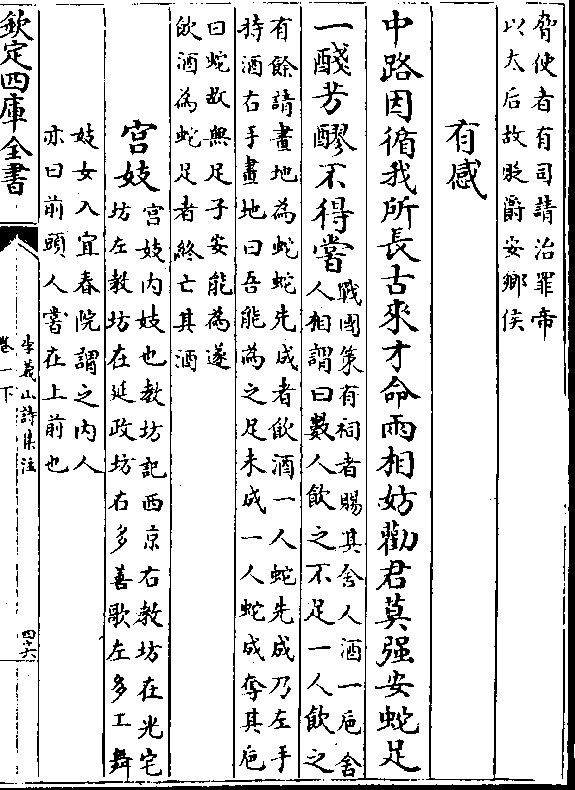 脅使者有司請治罪帝
以太后故貶爵安鄉侯
有感
中路因循我所長古來才命兩相妨勸君莫强安蛇足
一醆芳醪不得嘗
戰國策有祠者賜其舍人酒一巵舍
人相謂曰數人飲之不足一人飲之
有餘請畫地為蛇蛇先成者飲酒一人蛇先成乃左手
持酒右手畫地曰吾能為之足未成一人蛇成奪其巵
曰蛇故無足子安能為遂
飲酒為蛇足者終亡其酒
宫妓
宫妓内妓也教坊記西京右教坊在光宅
坊左教坊在延政坊右多善歌左多工舞
妓女入宜春院謂之内人
亦曰前頭人嘗在上前也
欽定四庫全書
李義山詩集注
卷一下
四十六